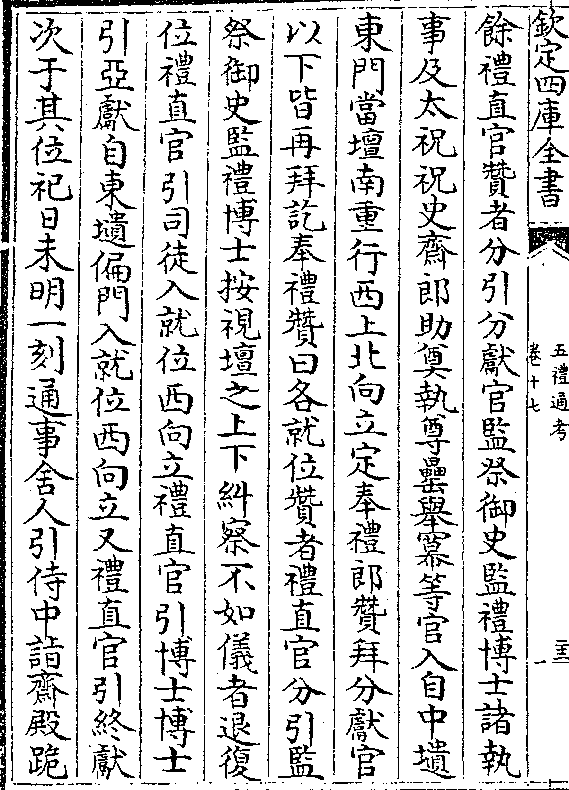 欽定四庫全書
五禮通考
卷十七
餘禮直官贊者分引分獻官監祭御史監禮博士諸執
事及太祝祝史齋郎助奠執尊罍舉冪等官入自中壝
東門當壇南重行西上北向立定奉禮郎贊拜分獻官
以下皆再拜訖奉禮贊曰各就位贊者禮直官分引監
祭御史監禮博士按視壇之上下糾察不如儀者退復
位禮直官引司徒入就位西向立禮直官引博士博士
引亞獻自東壝偏門入就位西向立又禮直官引終獻
次于其位祀日未明一刻通事舍人引侍中詣齋殿跪